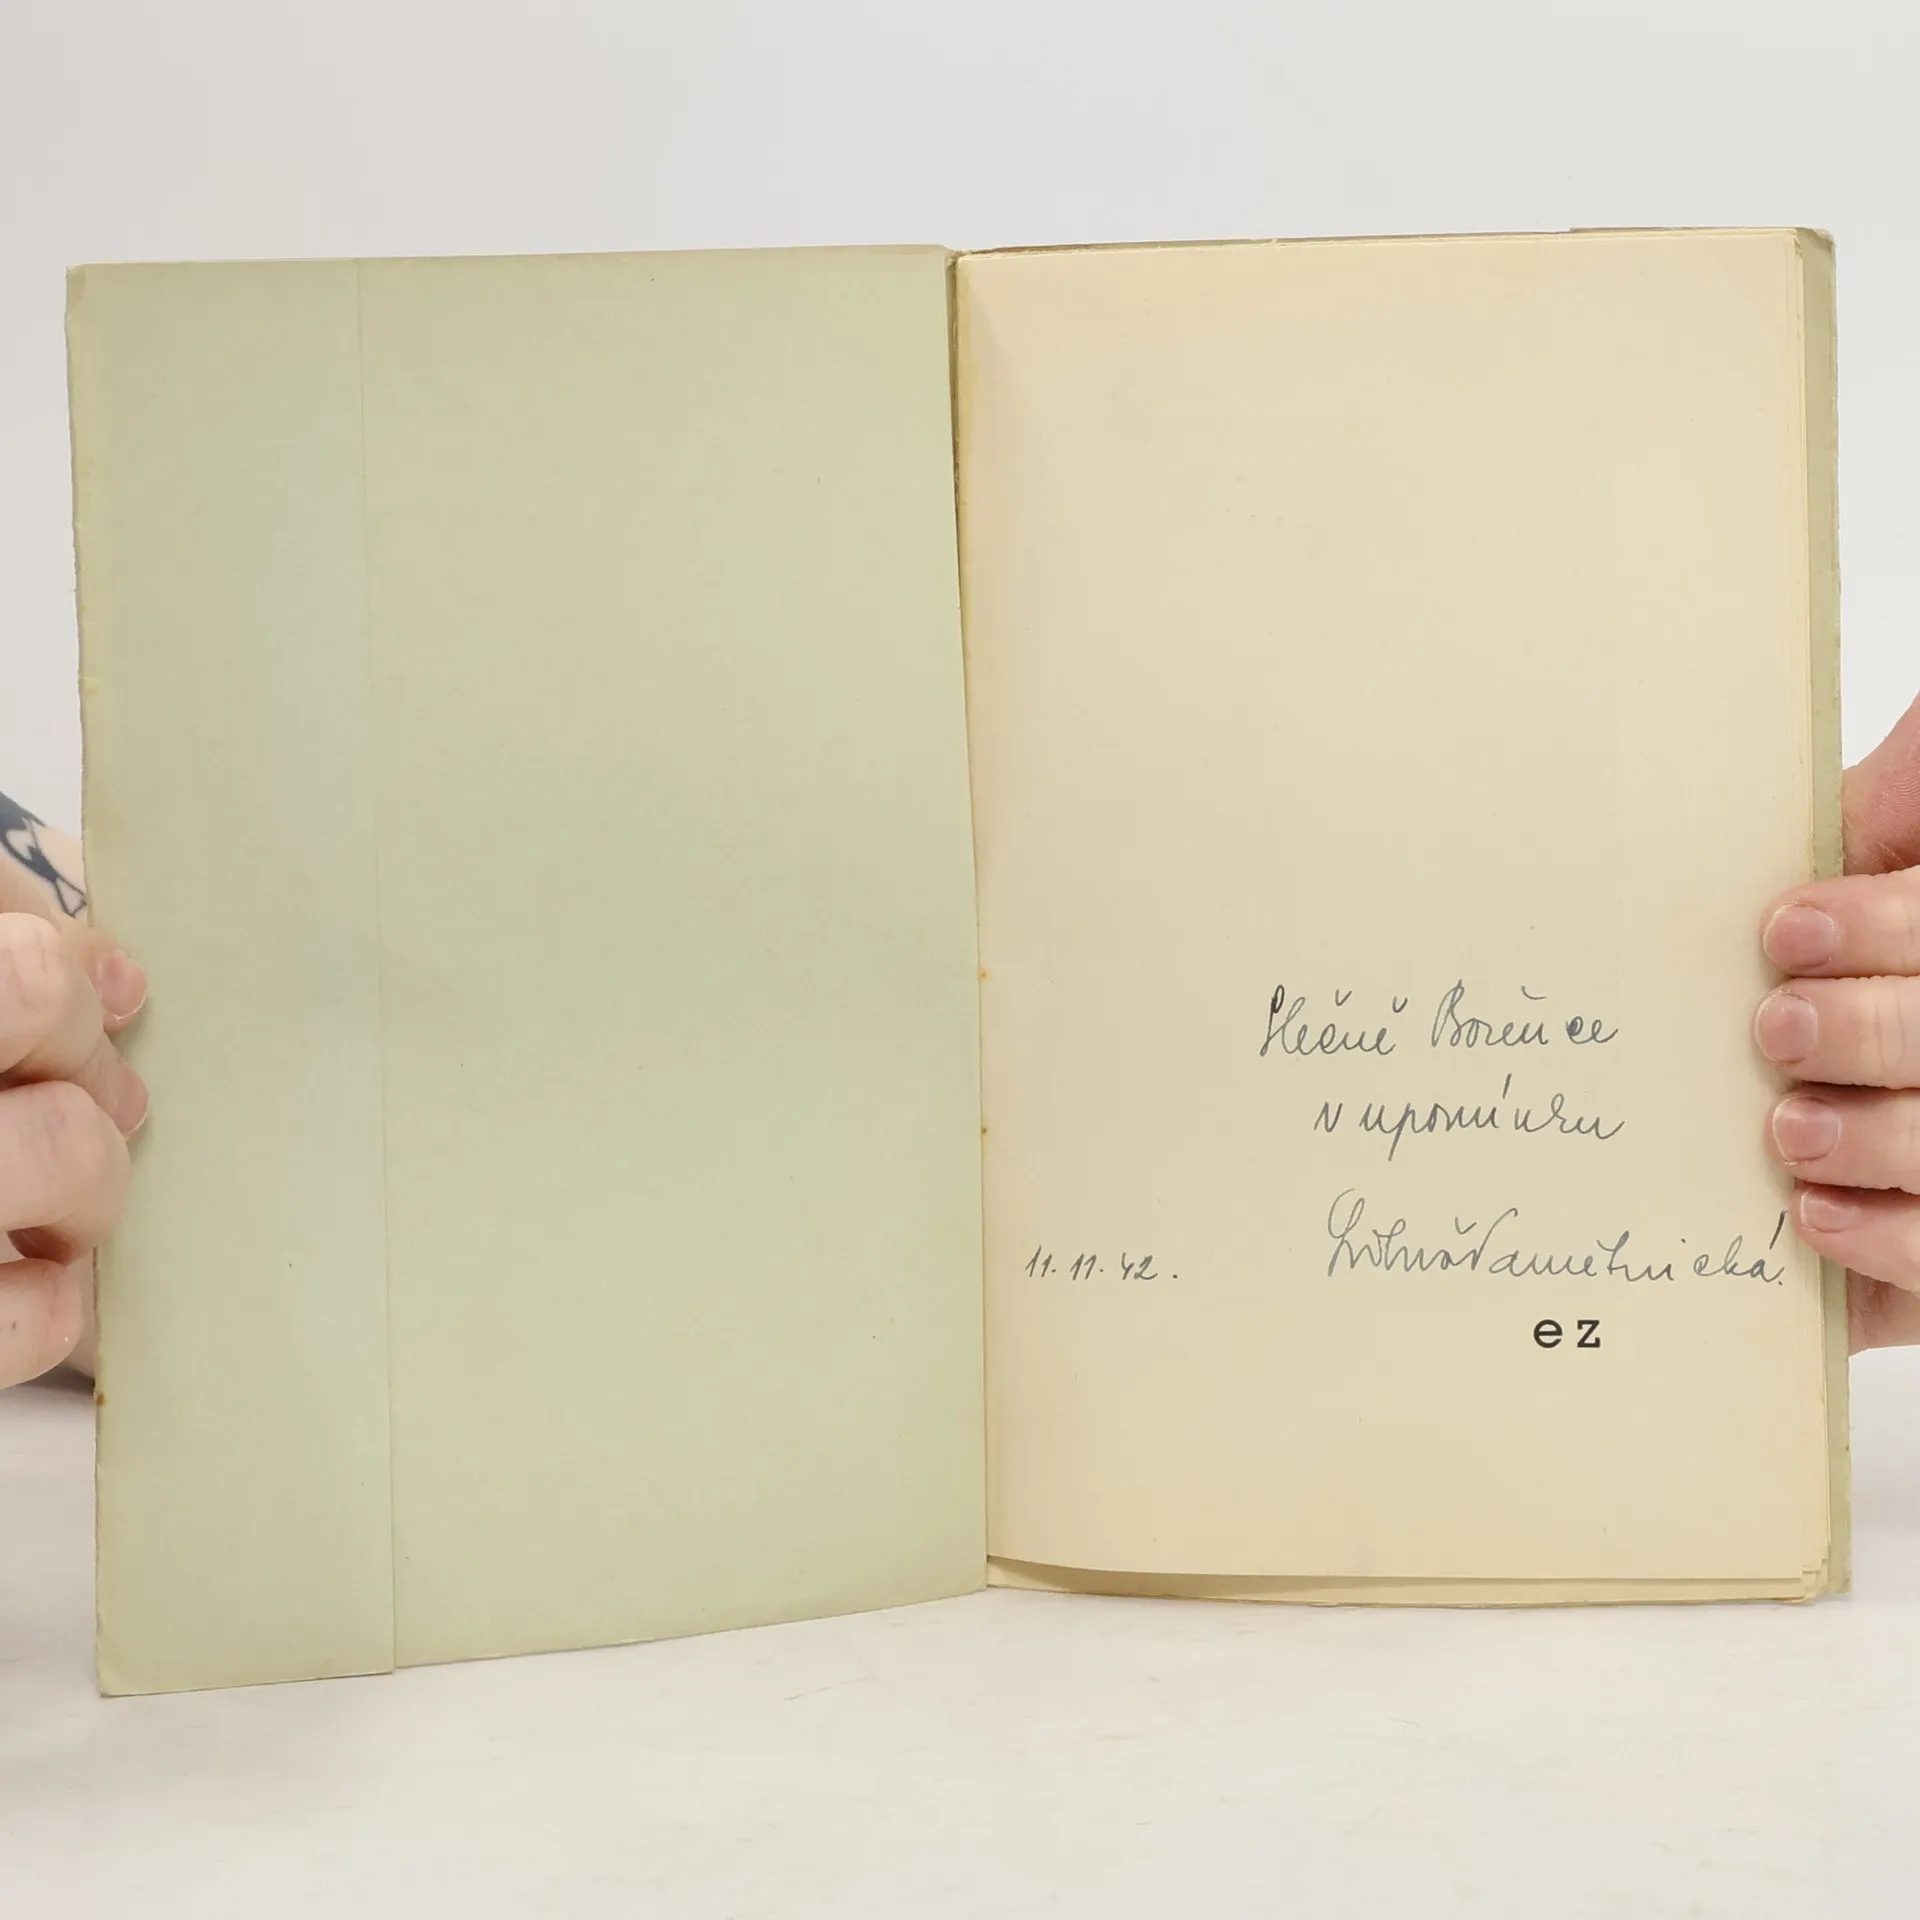 Slečně Božence
v upomínku
11. 11. 42. Libuše Pamětnická.
ez